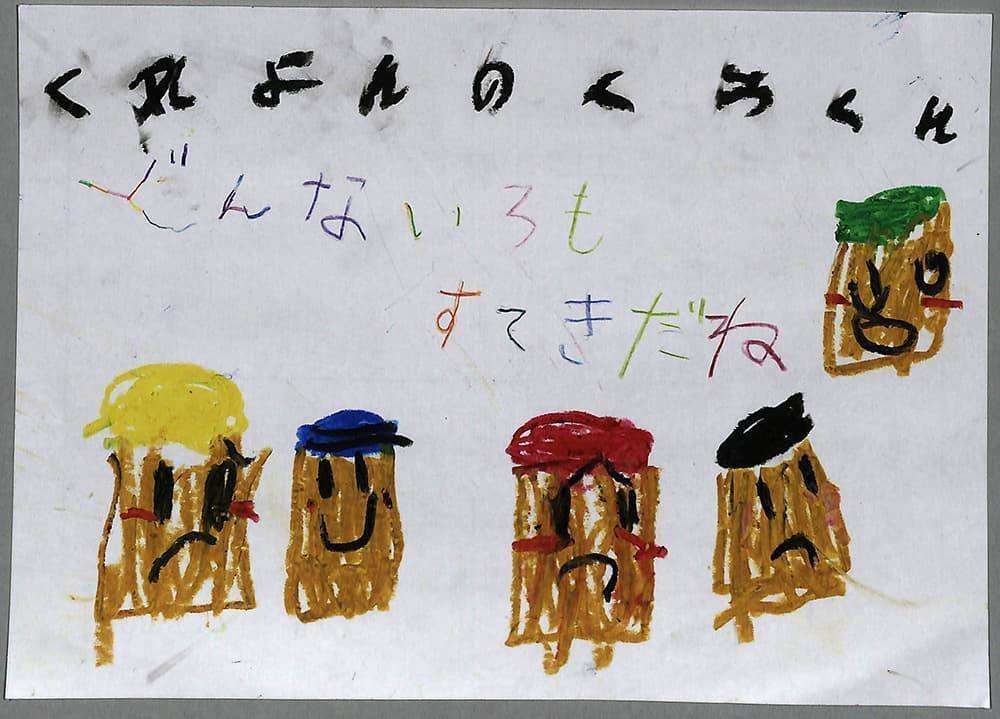 くれよんのくろくん
どんないろも
すてきだね